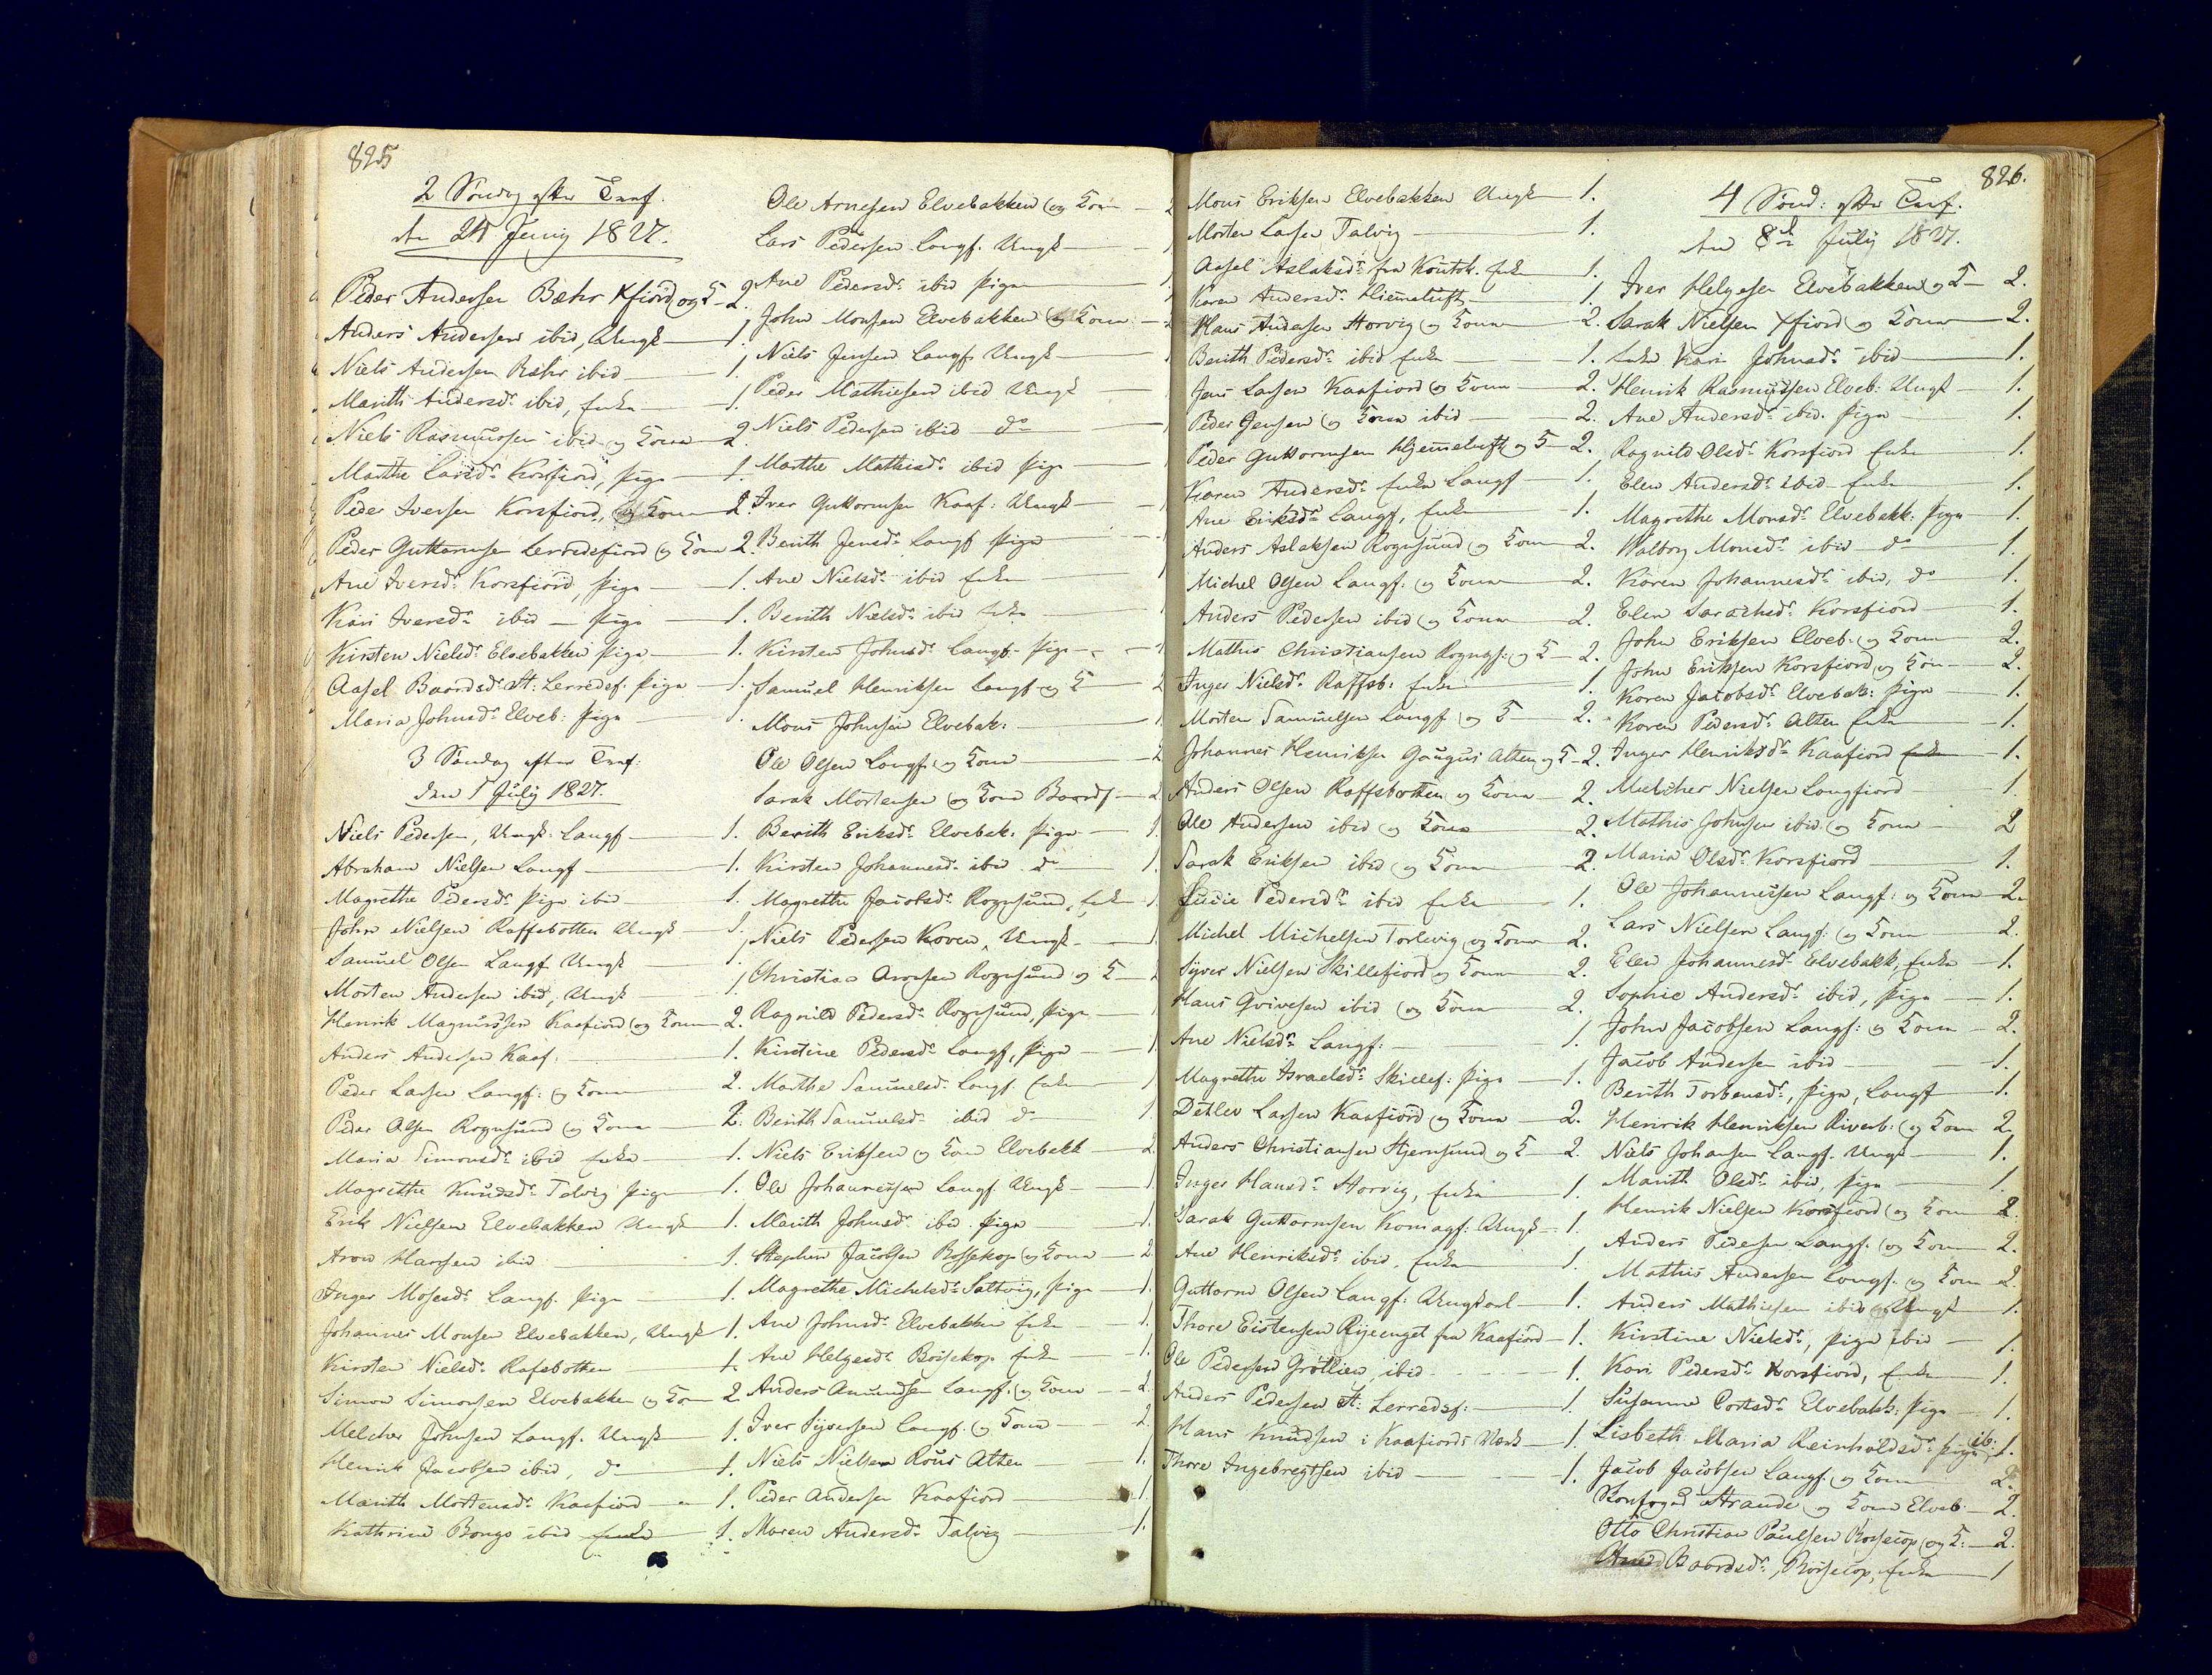 825
2 Søndag efter Trnf.
den 24 Junij 1827.
Peder Andersen Bæhr Kfiord og K 2.
Anders Andersen ibid, Ungk 1.
Niels Andersen Bæhr ibid 1.
Marith Andersdr ibid, Enke 1.
Niels Rasmussen ibid og Kone 2.
Marthe Larsdr Korsfiord, Pige 1.
Peder Iversen Korsfiord, og Kone 2.
Peder Guttormsen Lerredsfiord og Kone 2.
Ane Iversdr Korsfiord, Pige 1.
Kari Iversdr ibid Pige 1.
Kirsten Nielsdr Elvebakken Pige 1.
Aasel Baardsdr St: Lerredsf. Pige 1.
Maria Johnsdr Elveb: Pige 1.
3 Søndag efter Trnf:
den 1 Julij 1827.
Niels Pedersen, Ungk: Langf 1.
Abraham Nielsen Langf 1.
Magrethe Pedersdr Pige ibid 1.
John Nielsen Raffsbotten Ungk 1.
Samuel Olsen Langf Ungk 1.
Morten Andersen ibid, Ungk 1
Henrik Magnussen Kaafiord og Kone 2.
Anders Andersen Kaaf: 1.
Peder Larsen Langf: og Kone 2.
Peder Olsen Rognsund og Kone 2.
Maria Simonsdr ibid Enke 1.
Magrethe Knudsdr Talvig Pige 1.
Erik Nielsen Elvebakken Ungk 1.
Aron Hansen ibid 1.
Inger Mosesdr Langf. Pige 1.
Johannes Monsen Elvebakken, Ungk 1.
Kirsten Nielsdr Rafsbotten 1.
Simon Simonsen Elvebakken og Ko 2.
Melcher Johnsen Langf. Ungk 1.
Henrik Jacobsen ibid, do 1.
Marith Mortensdr Kaafiord 1.
Kathrine Bongo ibid Enke 1.
Ole Arnesen Elvebakken og Kone 2
Lars Pedersen Langf. Ungk 1
Ane Pedersdr ibid Pige 1
John Monsen Elvebakken og Kone 2
Niels Jensen Langf. Ungk 1
Peder Mathiesen ibid Ungk
Niels Pedersen ibid do 1
Marthe Mathisdr ibid Pige
Iver Guttormsen Kaaf: Ungk
Berith Jensdr Langf Pige 1
Ane Nielsdr ibid Enke 1
Berith Nielsdr ibid Enke 1
Kirsten Johnsdr Langf. Pige 1
Samuel Henriksen Langf og K 2
Mons Johnsen Elvebak: 1
Ole Olsen Langf. og Kone 2
Sarak Mortensen og Kone 2
Berith Eriksdr Elvebak: Pige 1.
Kirsten Johannesdr ibid do 1.
Magrethe Jacobsdr Rognsund, Enke 1
Niels Pedersen Koven, Ungk 1.
Christian Aronsen Rognsund og K 2
Ragnild Pedersdr Rognsund, Pige 1
Kirstine Pedersdr Langf, Pige 1.
Marthe Samuelsdr Langf. Enke 1
Berith Samuelsdr ibid do 1.
Niels Eriksen og Kone Elvebakk 2.
Ole Johannessen Langf. Ungk 1
Marith Johnsdr ibid. Pige 1.
Stephen Jacobsen Bossekop og Kone 2
Magrethe Michelsdr Saltvig, Pige 1.
Ane Johnsdr Elvebakken Enke 1.
Ane Helgesdr Bossekop Enke 1.
Anders Amundsen Langf. og Kone 2.
Iver Syversen Langf. og Kone 2.
Niels Nielsen Rous Alten 1.
Peder Andersen Kaafiord 1
Maren Andersdr Talvig 1.
826.
Mons Eriksen Elvebakken Ungk 1.
Morten Larsen Talvig 1.
Aasel Aslaksdr fra Koutok. Enke 1.
Karen Andersdr Hiemeluft 1.
Hans Andersen Storvig og Kone 2.
Berith Pedersdr ibid Enke 1.
Jens Larsen Kaafiord og Kone 2.
Peder Jensen og Kone ibid 2.
Peder Guttormsen Hjemeluft og K 2.
Karen Andersdr Enke Langf 1.
Ane Eriksdr Langf, Enke 1.
Anders Aslaksen Rognsund og Kone 2.
Michel Olsen Langf: og Kone 2.
Anders Pedersen ibid og Kone 2.
Mathis Christiansen Rognss: og K 2.
Inger Nielsdr Raffsb: Enke 1.
Morten Samuelsen Langf og K 2.
Johannes Henriksen Alten og K 2.
Anders Olsen Raffsbotten og Kone 2.
Ole Andersen ibid og Kone 2.
Sarak Eriksen ibid og Kone 2.
Lucie Pedersdr ibid Enke 1.
Michel Michelsen Torlevig og Kone 2.
Syver Nielsen Skillefiord og Kone 2.
Hans ibid og Kone 2.
Ane Nielsdr Langf: 1
Magrethe Israelsdr Skillef: Pige 1.
Detlev Larsen Kaafiord og Kone 2.
Anders Christiansen Stjernsund og K 2.
Inger Hansdr Storvig, Enke 1.
Sarak Guttormsen Komagf: Ungk 1.
Ane Henriksdr ibid. Enke 1.
Guttorm Olsen Langf: Ungkarl 1.
Thore Eistensen Rijeenget fra Kaafiord 1.
Ole Pedersen Grøtlien, ibid 1.
Anders Pedersen St: Lerredsf: 1.
Hans Knudsen i Kaafiords Værk 1.
Thore Ingebregtsen ibid 1.
4 Sønd: efter Trnf.
den 8de Julij 1827.
Iver Helgesen Elvebakken og K 2.
Sarak Nielsen Xfiord og Kone 2.
Enke Kari Johnsdr ibid 1.
Henrik Rasmussen Elveb: Ungk 1.
Ane Andersdr ibid. Pige 1.
Ragnild Olsdr Korsfiord Enke 1.
Elen Andersdr ibid Enke 1.
Magrethe Monsdr Elvebakk: Pige 1.
Walborg Monsdr ibid do 1.
Karen Johannesdr ibid, do 1.
Elen Sarachsdr Korsfiord 1.
John Eriksen Elveb. og Kone 2.
John Eriksen Korsfiord og Kon 2.
Karen Jacobsdr Elvebak: Pige 1.
Karen Pedersdr Alten Enke 1.
Inger Henriksdr Kaafiord Enke 1.
Melcher Nielsen Langfiord 1
Mathis Johnsen ibid og Kone 2
Maria Olsdr Korsfiord 1.
Ole Johannessen Langf: og Kone 2.
Lars Nielsen Langf: og Kone 2.
Elen Johannesdr Elvebakk, Enke 1.
Sophie Andersdr ibid, Pige 1.
John Jacobsen Langf: og Kone 2.
Jacob Andersen ibid 1.
Berith Torbensdr, Pige, Langf 1.
Henrik Henriksen Riverb: og Kone 2.
Niels Johansen Langf. Ungk 1.
Marith Olsdr ibid, Pige 1.
Henrik Nielsen Korsfiord og Kone 2.
Anders Pedersen Langf. og Kone 2.
Mathis Andersen Langf. og Kone 2.
Anders Mathiesen ibid Ungk 1.
Kirstine Nielsdr, Pige ibid 1.
Kari Pedersdr Korsfiord, Enke 1.
Susanne Cortsdr Elvebakk: Pige 1.
Lisbeth Maria Reinholdsdr Pige ib: 1.
Jacob Jacobsen Langf. og Kone 2.
Strande og Kone Elveb. 2.
Otto Christian Paulsen Bossecop og K: 2.
Baardsdr, Bossecop, Enke 1